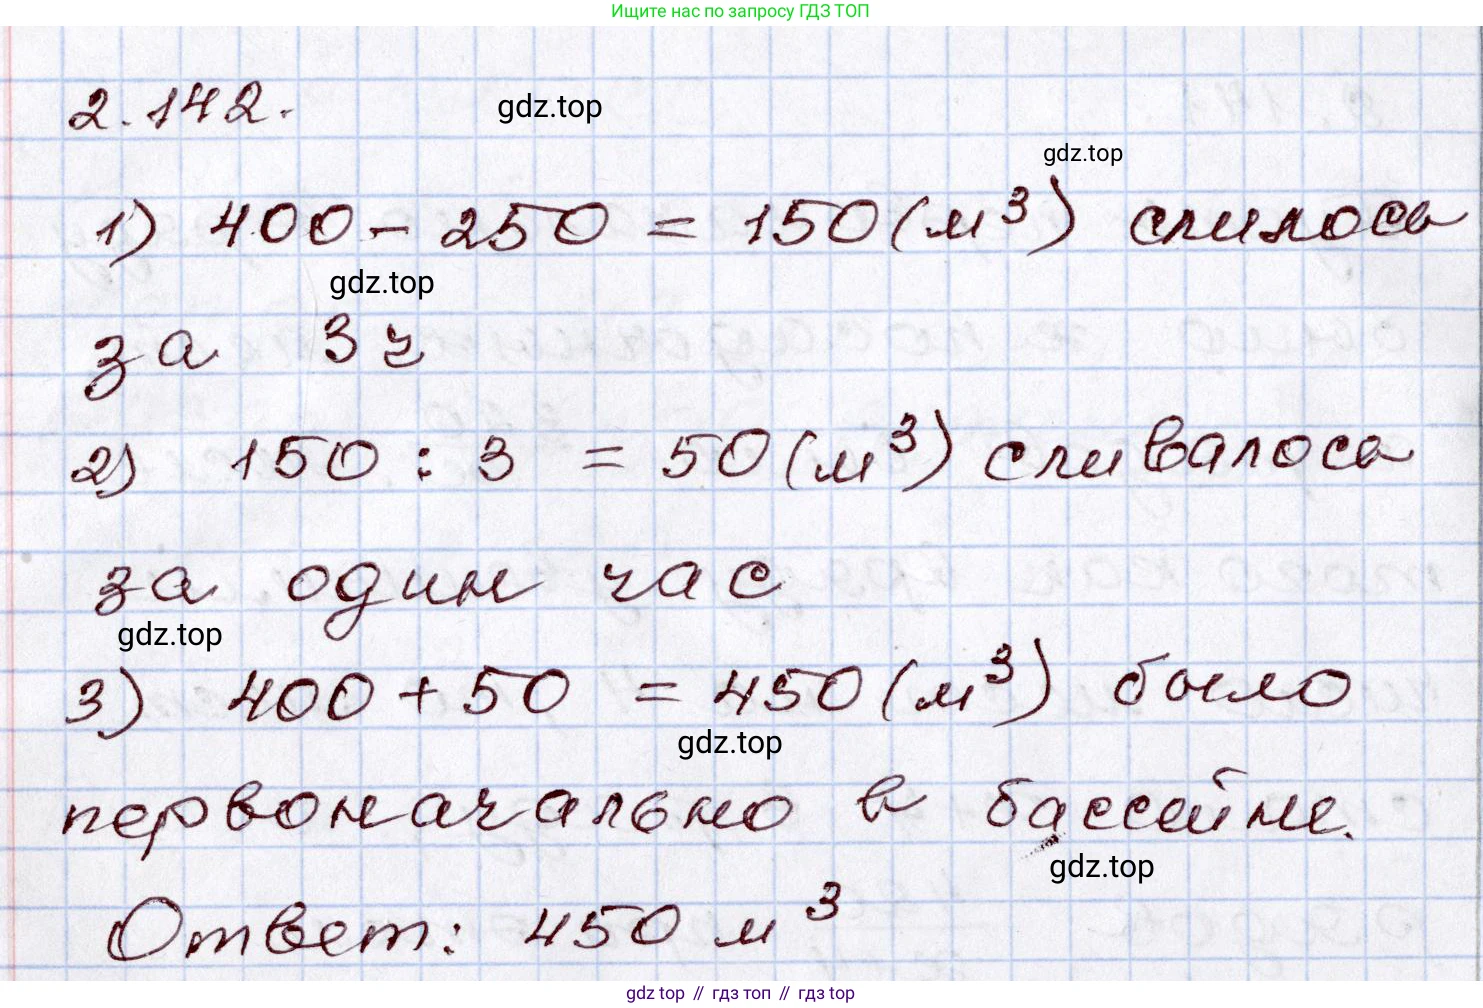 Ищите нас по запросу ГДЗ ТОП
2.142.
gdz.top
gdz.top
1) 400 - 250 = 150 (м³) слилось
gdz.top
за 3 ч
2) 150 : 3 = 50 (м³) сливалось
за один час
gdz.top
3) 400 + 50 = 450 (м³) было
gdz.top
первоначально в бассейне.
gdz.top
Ответ: 450 м³
gdz top // гдз топ // gdz top